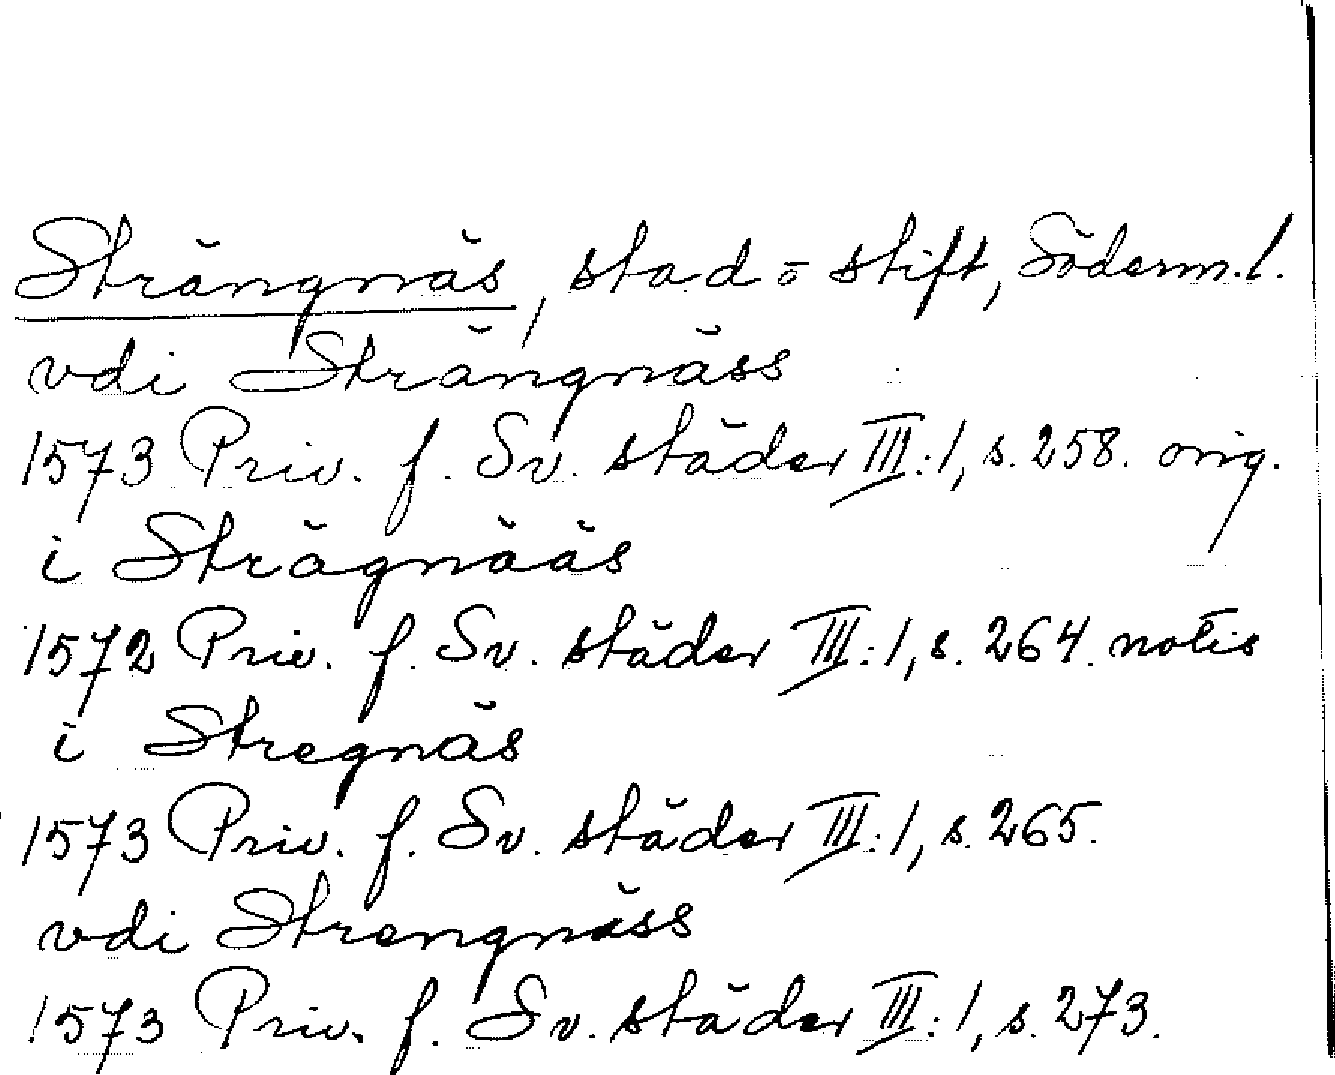 Strängnäs, stad o stift, Söderm.l.
vdi Strängnäss
1573 Priv. f. Sv. städer III:1, s. 258. orig.
i Strägnääs
1572 Priv. f. Sv. städer III:1, s. 264. notis
i Stregnäs
1573 Priv. f. Sv. städer III:1, s. 265.
vdi Strengnäss
1573 Priv. f. Sv. städer III:1, s. 273.